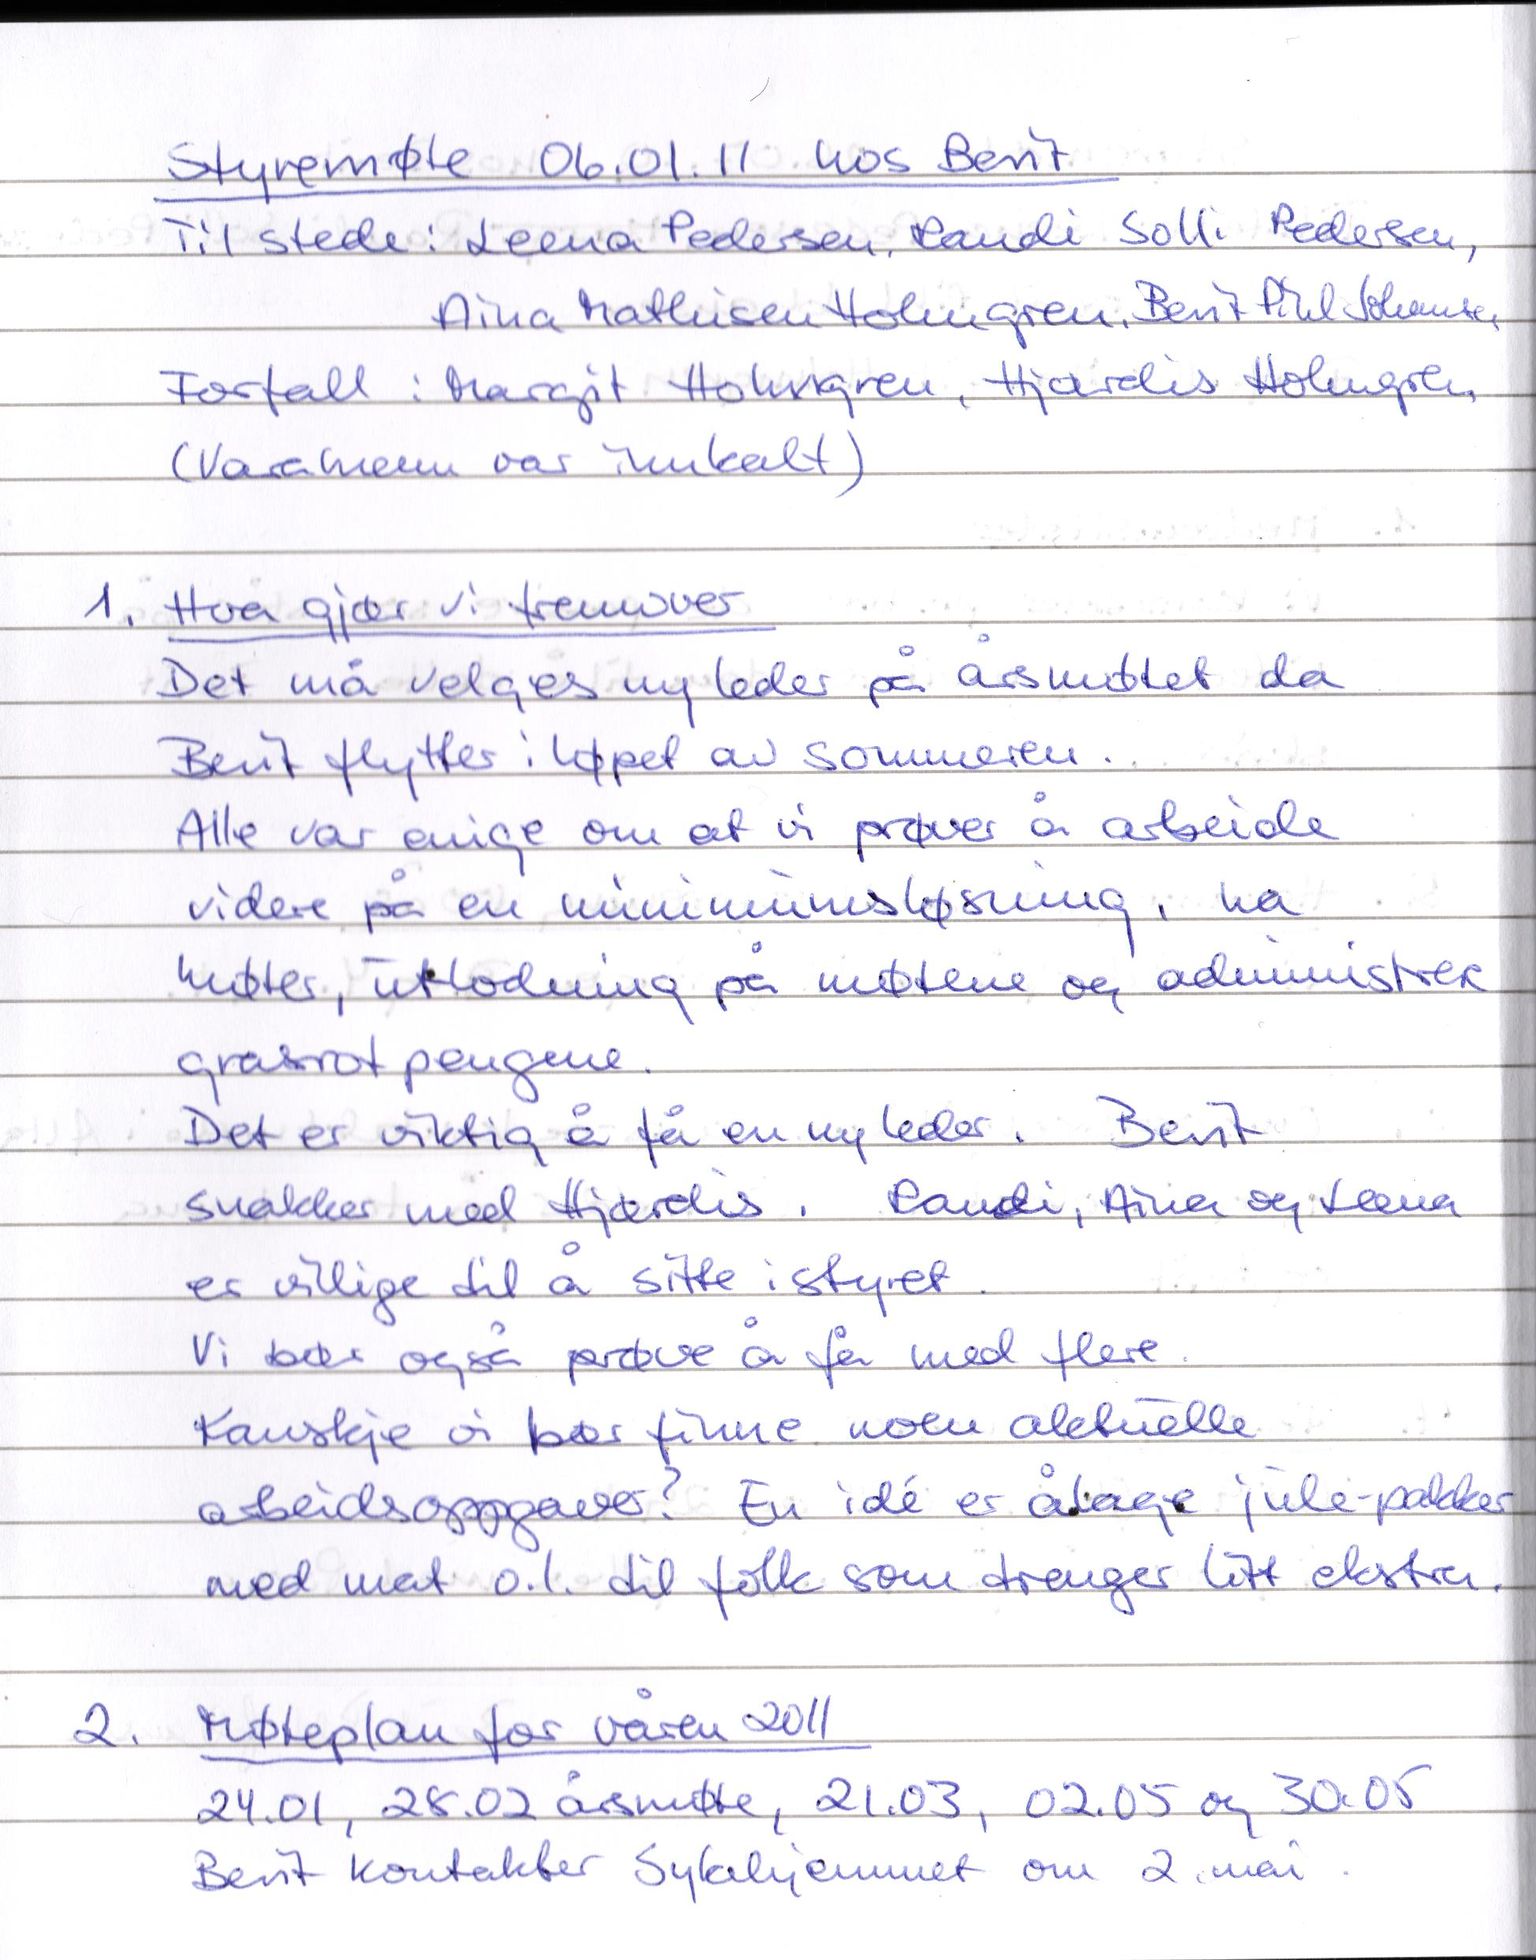 Styremøte 06.01.11 hos Berit
Til stede: Leena Pedersen, Randi Solli Pedersen,
Aina Mathisen Holmgren, Berit Pihl Johansen
Forfall : Margit Holmgren, Hjørdis Holmgren,
(Varamenn var innkalt)
1. Hva gjør vi fremover
Det må velges ny leder på årsmøtet da
Berit flytter i løpet av sommeren.
Alle var enige om at vi prøver å arbeide
videre på en minimumsløsning, ha
møter, utlodning på møtene og administrere
grasrotpengene.
Det er viktig å få en ny leder. Berit
snakker med Hjørdis. Randi, Aina og Leena
er villige til å sitte i styret.
Vi bør også prøve å få med flere.
Kanskje vi bør finne noen aktuelle
arbeidsoppgaver? En idé er å lage jule-pakker
med mat o.l. til folk som trenger litt ekstra.
2. Møteplan for våren 2011
24.01, 28.02 årsmøte, 21.03, 02.05 og 30.05
Berit kontakter Sykehjemmet om 2. mai.